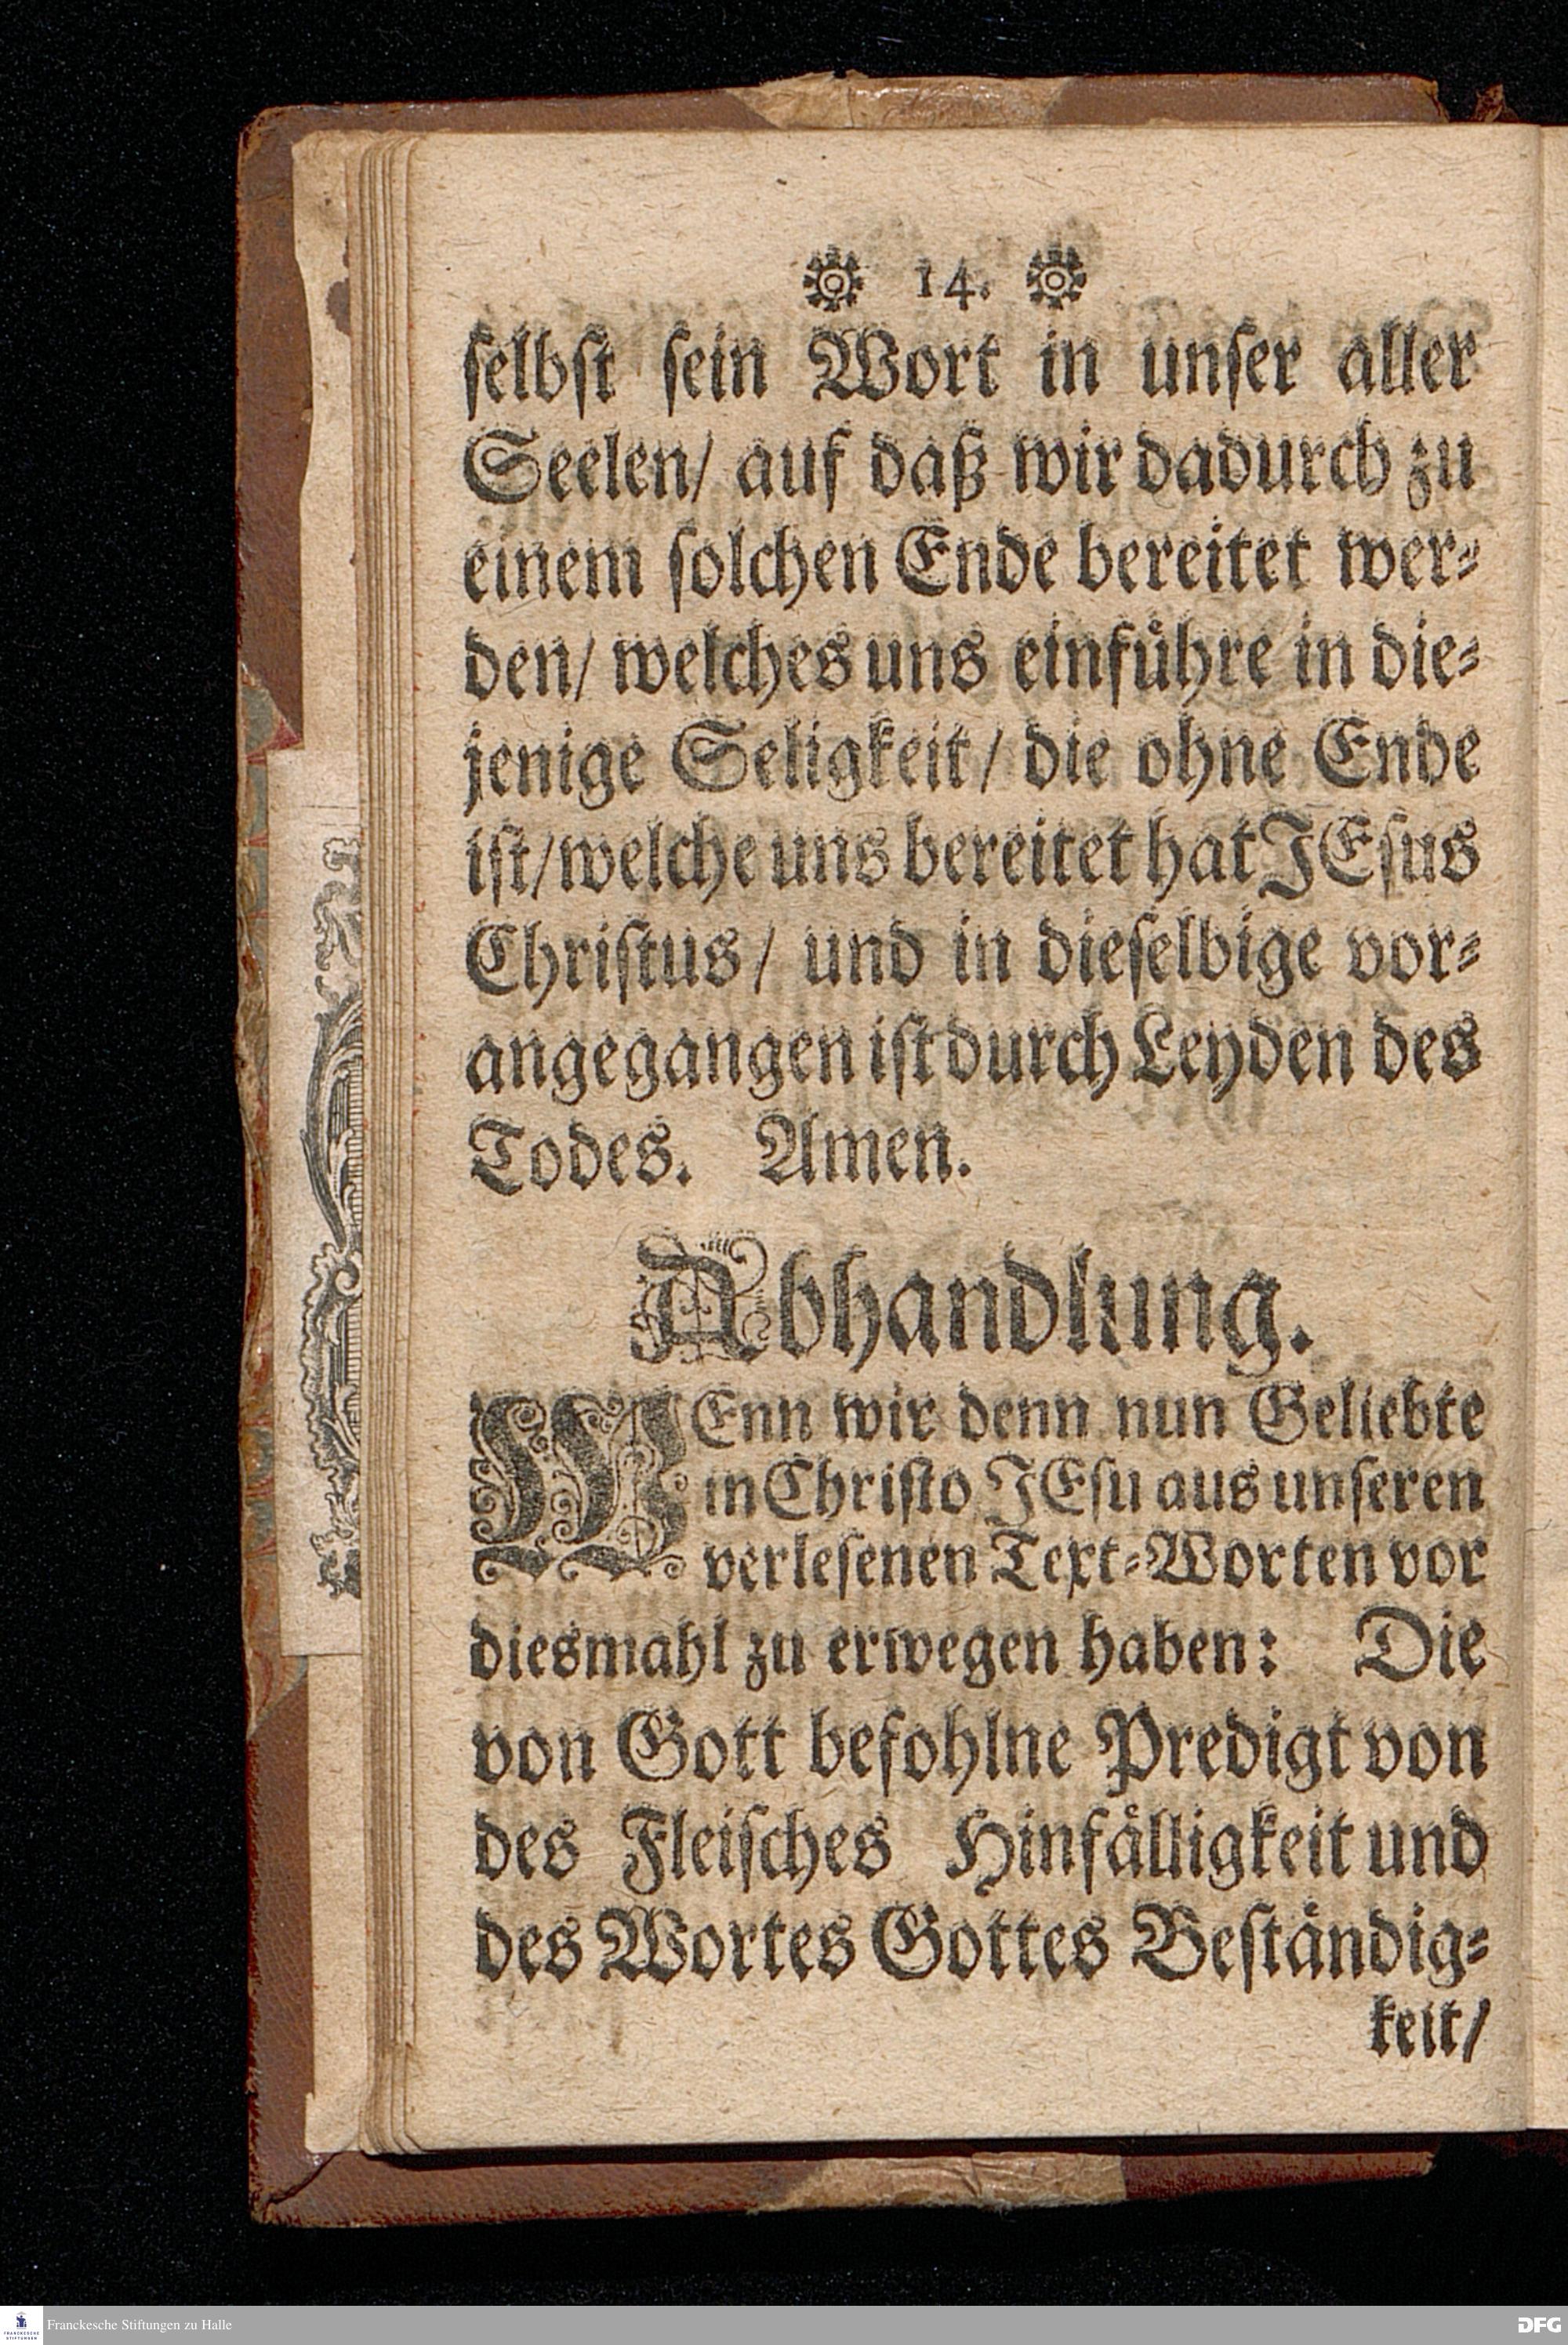 14.
selbst sein Wort in unser aller
Seelen/ auf daß wir dadurch zu
einem solchen Ende bereitet wer⸗
den/ welches uns einführe in die⸗
jenige Seligkeit/ die ohne Ende
ist/welche uns bereitet hat JEsus
Christus/ und in dieselbige vor⸗
angegangen ist durch Leyden des
Todes. Amen.
Abhandlung.
WEnn wir denn nun Geliebte
in Christo JEsu aus unseren
verlesenen Text⸗Worten vor
diesmahl zu erwegen haben: Die
von Gott befohlne Predigt von
des Fleisches Hinfälligkeit und
des Wortes Gottes Beständig⸗
keit/
FRANCKESCHE
STIFTUNGEN
Franckesche Stiftungen zu Halle
DFG